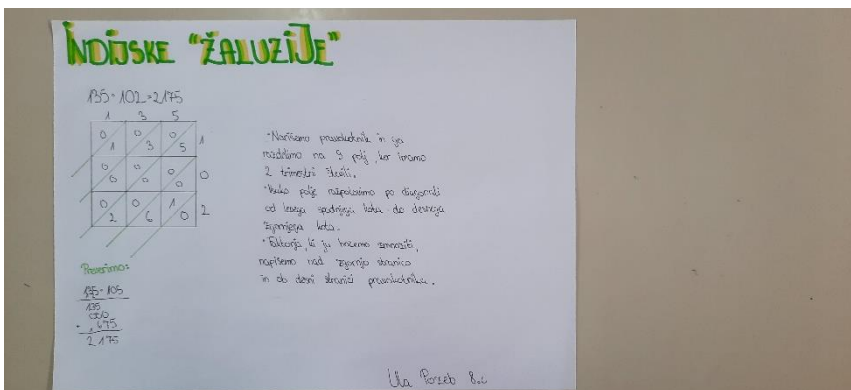 INDIJSKE "ŽALUZIJE"
135 · 102 = 2175
1 3 5
0 0 0
1 3 5 1
0 0 0
0 0 0 0
0 0 1
2 6 0 2
Preverimo:
135 · 105
135
000
675
2175
• Narišemo pravokotnik in ga
razdelimo na 9 polj, ker imamo
2 trimestni števili.
• Vsako polje razpolovimo po diagonali
od levega spodnjega kota do desnega
zgornjega kota.
• Faktorja, ki ju hočemo zmnožiti,
napišemo nad zgornjo stranico
in ob desni stranici pravokotnika.
8.c